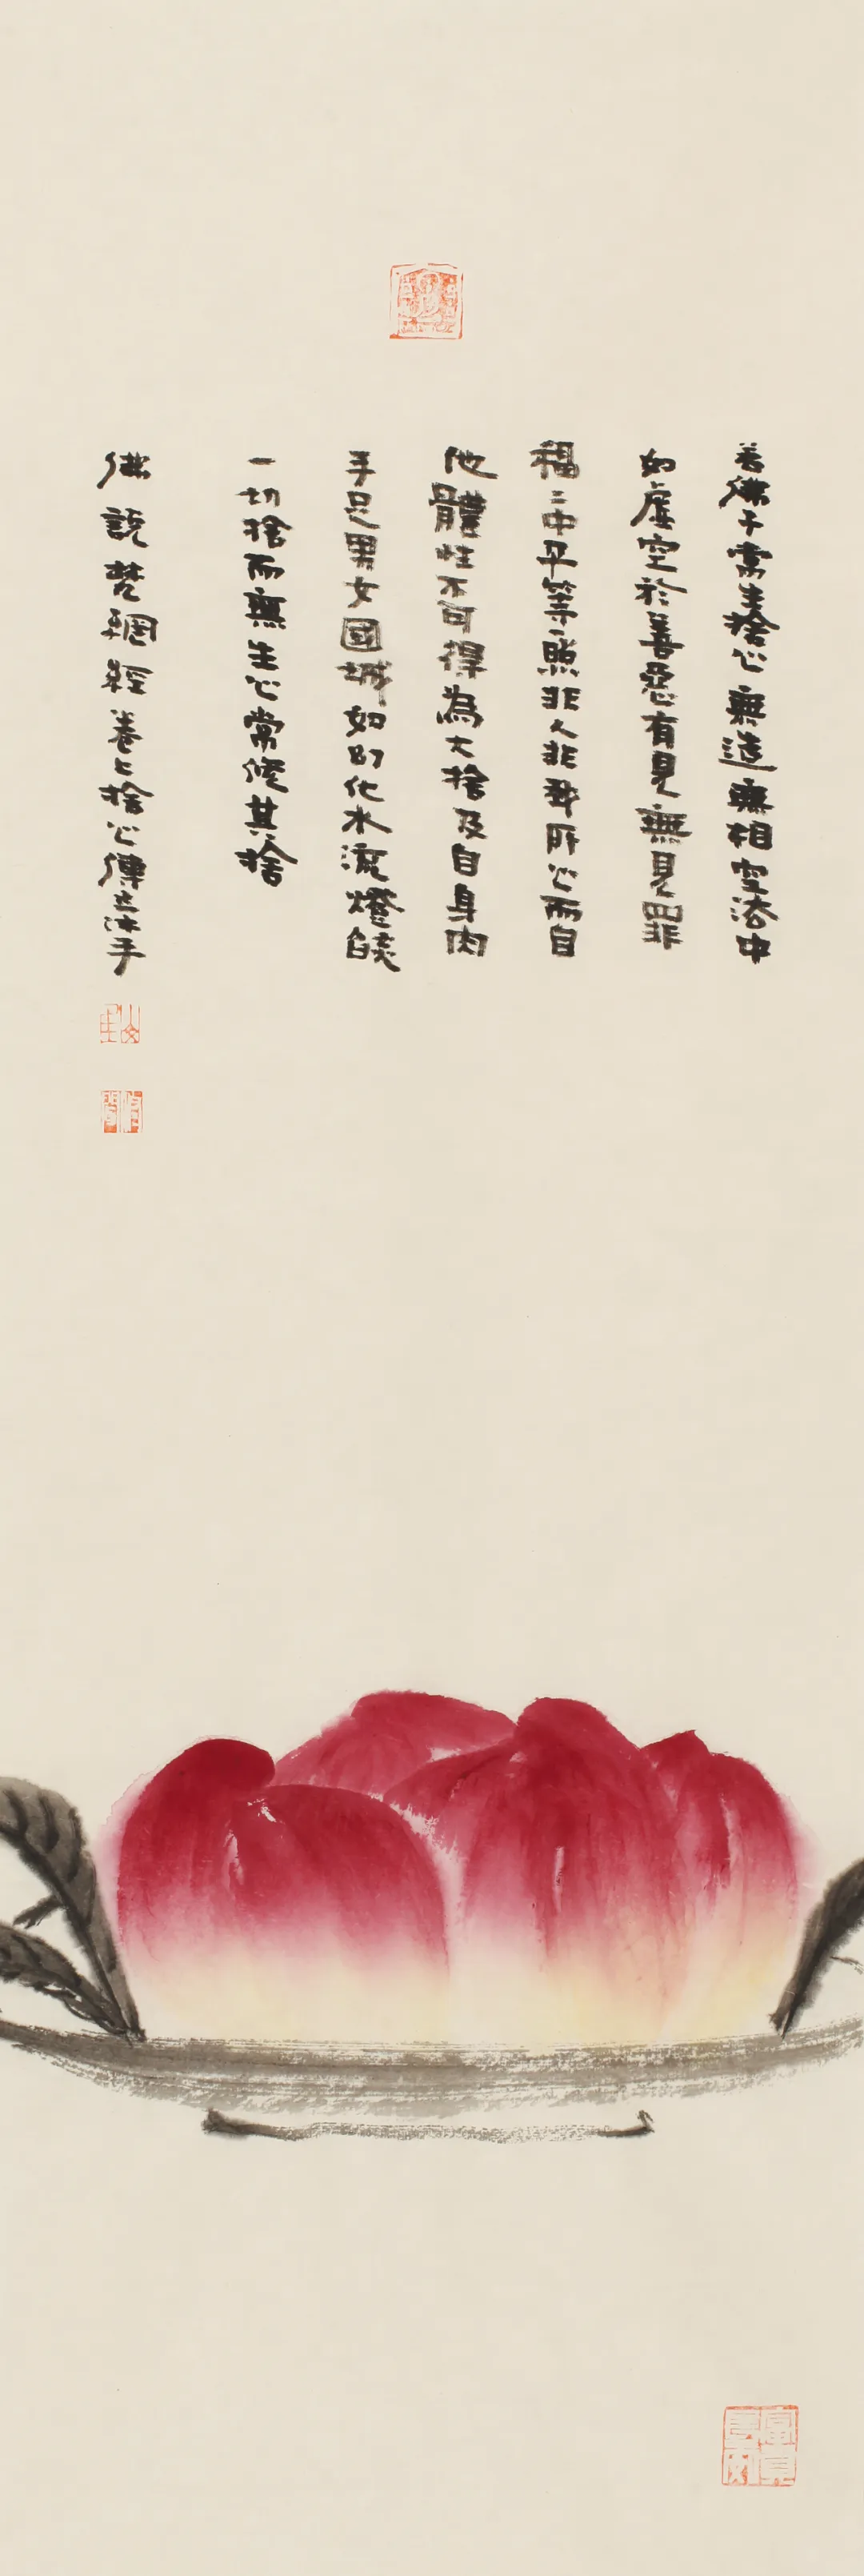 若佛子常生捨心無造無相空法中
如虛空於善惡有見無見罪
福二中平等一照非人非我所心而自
他體性不可得為大捨及自身肉
手足男女國城如幻化水流燈焰
一切捨而無生心常修其捨
佛說梵網經卷上捨心傳立沐手